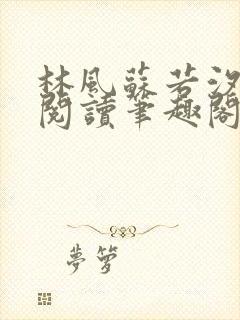 林風蘇若汐
閱讀筆趣閣
夢箩